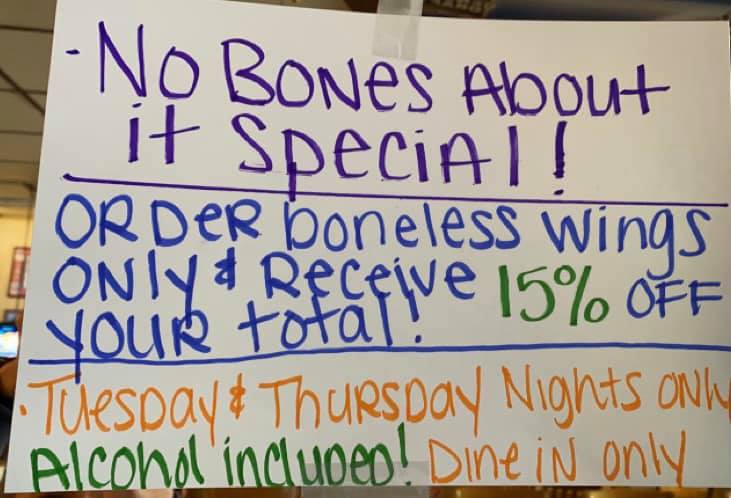 ·No BoNes About
it SpeciAl!
ORDeR boneless wings
ONly & Receive 15% OFF
YOUR total!
·Tuesday & Thursday Nights only
Alcohol included! Dine iN only